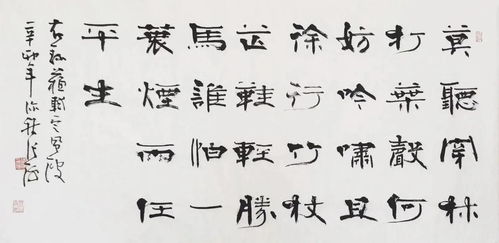 莫聽穿林
打葉聲何
妨吟嘯且
徐行竹杖
芒鞋輕勝
馬誰怕一
蓑煙雨任
平生
右錄蘇軾定風波
辛卯年